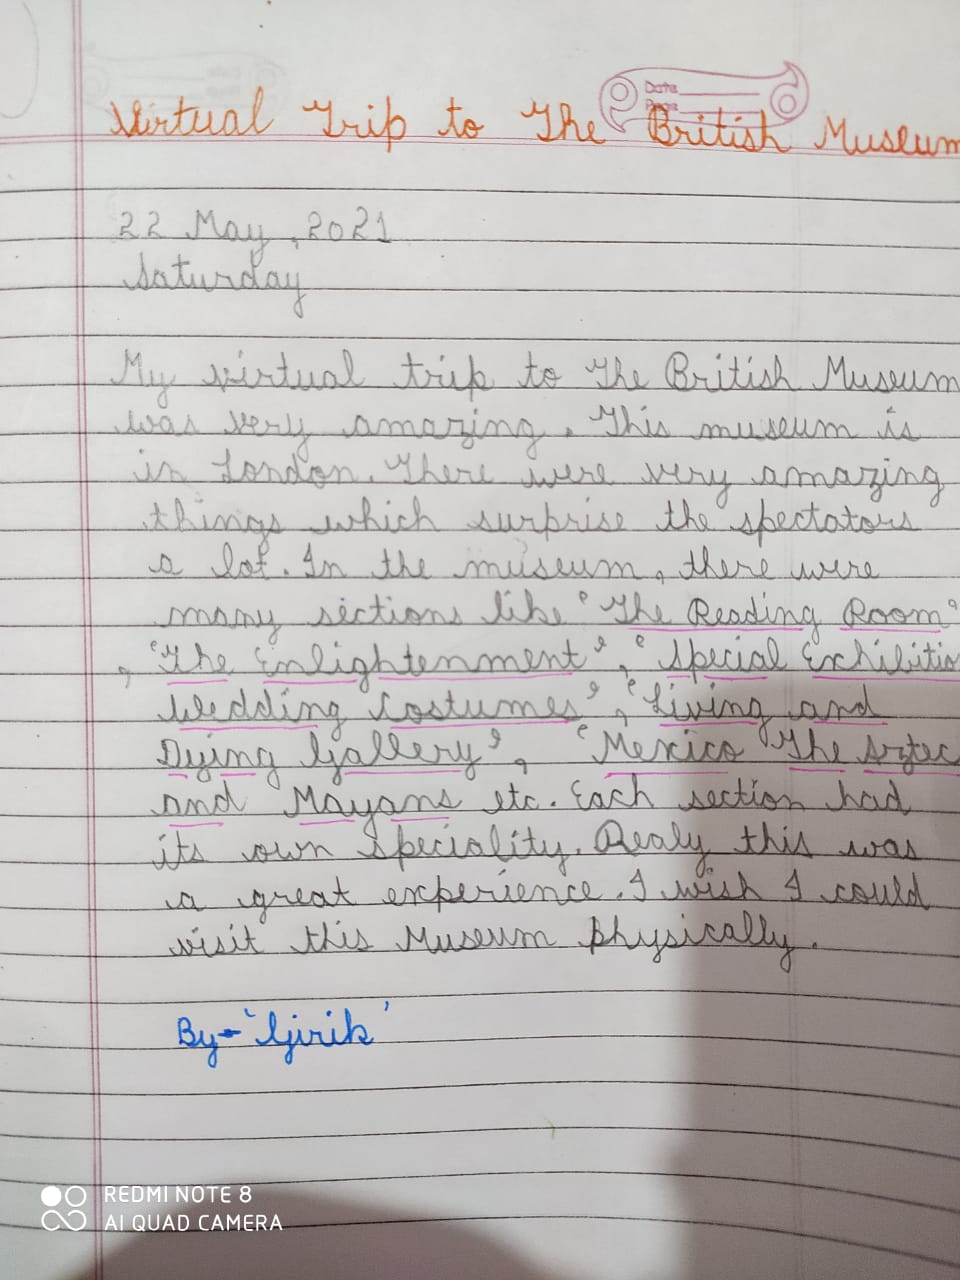 Date
Page
Virtual Trip to The British Museum
22 May, 2021
Saturday
My virtual trip to The British Museum
was very amazing. This museum is
in London. There were very amazing
things which surprise the spectators
a lot. In the museum, there were
many sections like 'The Reading Room'
, 'The Enlightenment', 'Special Exhibitio
Wedding Costumes', 'Living and
Dying Gallery', 'Mexico The Aztec
and Mayans etc. Each section had
its own speciality. Realy this was
a great experience. I wish I could
visit this Museum physically.
By-'Girik'
REDMI NOTE 8
AI QUAD CAMERA